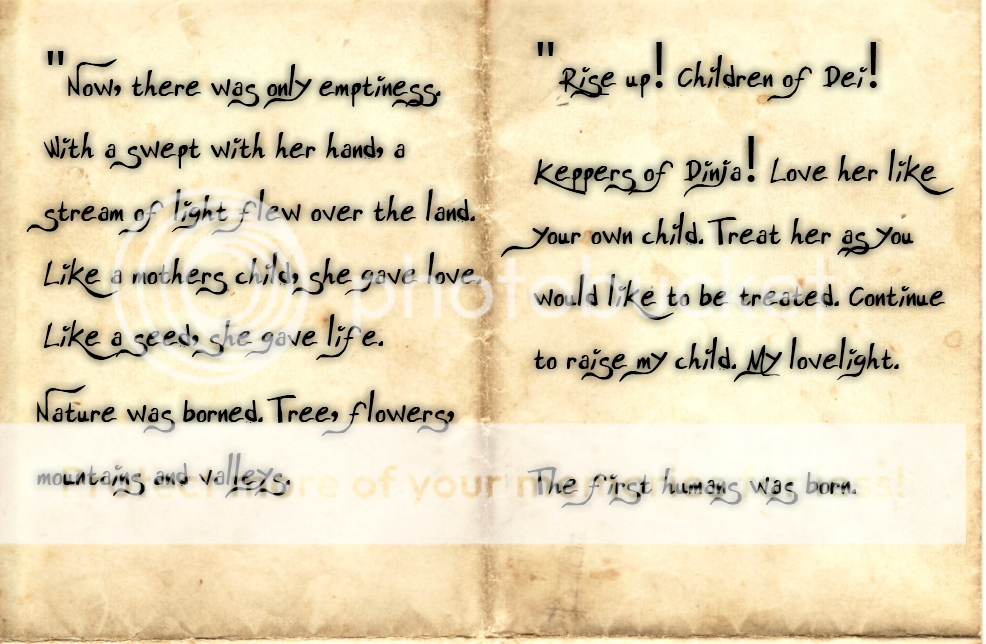 "Now, there was only emptiness.
With a swept with her hand, a
stream of light flew over the land.
Like a mothers child, she gave love.
Like a seed, she gave life.
Nature was borned. Tree, flowers,
mountains and valleys.
"Rise up! Children of Dei!
Keppers of Dinja! Love her like
your own child. Treat her as you
would like to be treated. Continue
to raise my child. My lovelight.
The first humans was born.
photobucket
Protect more of your memories for less!